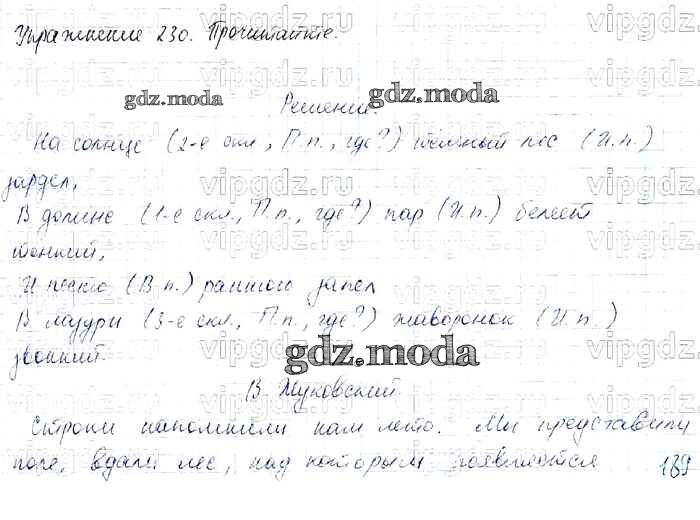 Упражнение 230. Прочитайте.
gdz.moda
gdz.moda
Решение.
На солнце (2-е скл., П.п., где?) тёмный лес (И.п.)
зардел,
В долине (1-е скл., П.п., где?) пар (И.п.) белеет
тонкий,
И песню (В.п.) раннюю запел
В лазури (3-е скл., П.п., где?) жаворонок (И.п.)
звонкий.
gdz.moda
В. Жуковский.
Строки напомнили нам лето. Мы представили
поле, вдали лес, над которым появляется
189
vipgdz